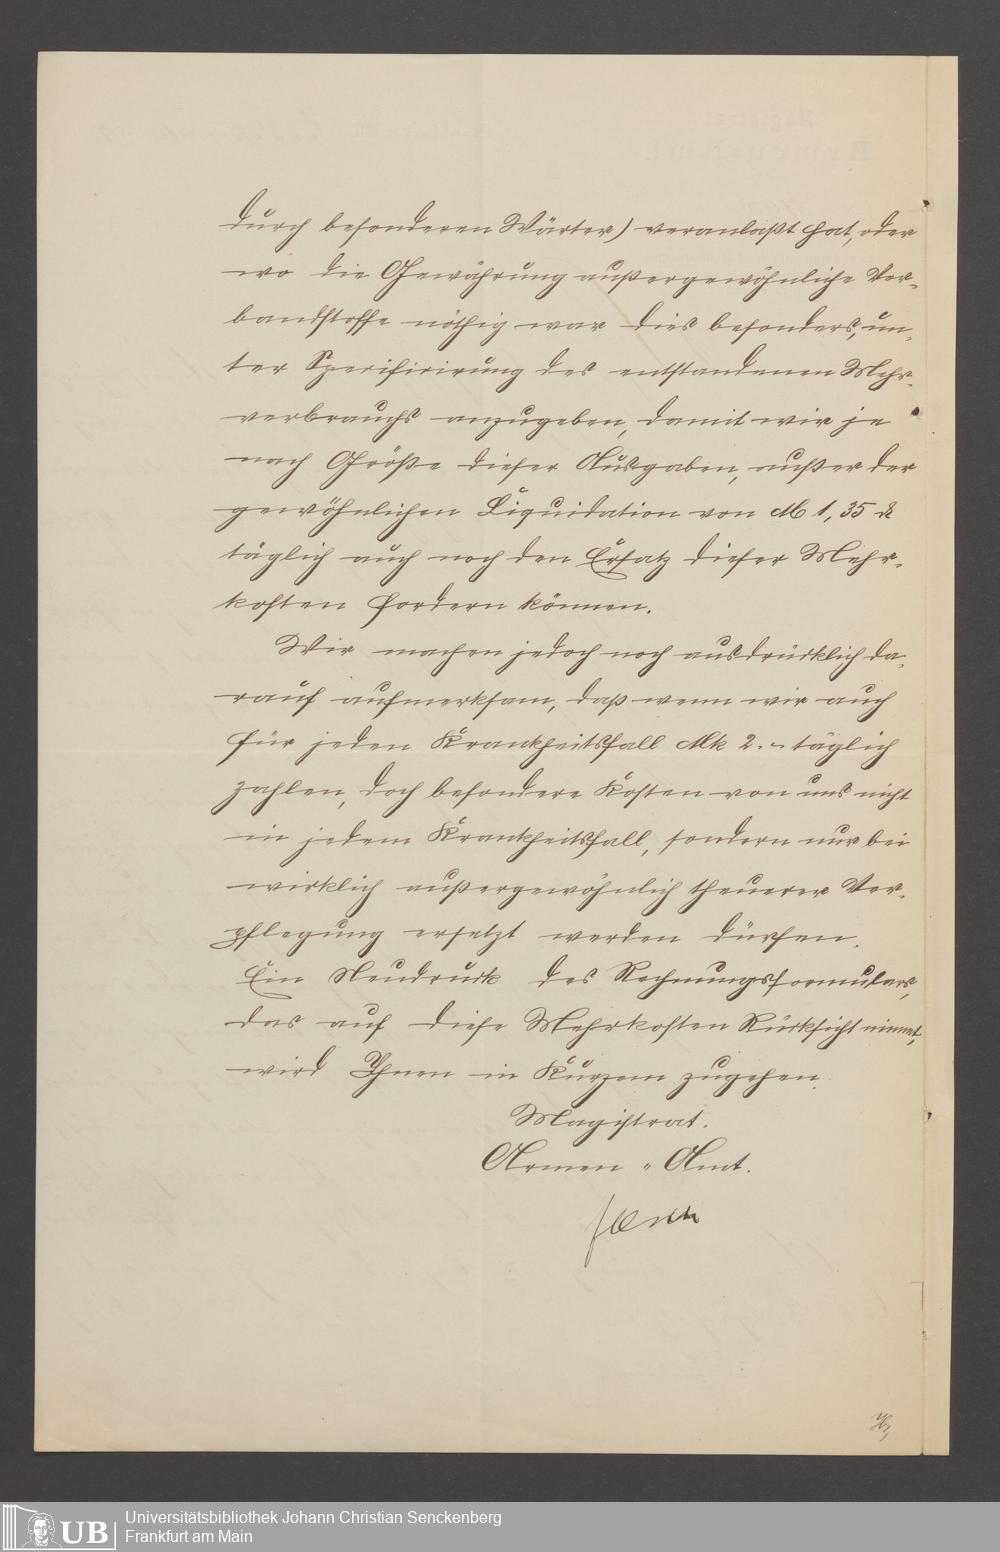 durch besonderen Wärter) veranlaßt hat, oder
wo die Gewährung außergewöhnliche Ver-
bandstoffe nöthig war dies besonders, un-
ter Specificirung des entstandenen Mehr-
verbrauchs anzugeben, damit wir je
nach Größe dieser Ausgaben, außer der
gewöhnlichen Liquidation von M 1,35 ₰
täglich auch noch den Ersatz dieser Mehr-
kosten fordern können.
Wir machen jedoch noch ausdrücklich da-
rauf aufmerksam, daß wenn wir auch
für jeden Krankheitsfall Mk 2.- täglich
zahlen, doch besondere Kosten von uns nicht
in jedem Krankheitsfall, sondern nur bei
wirklich außergewöhnlich theuerer Ver-
pflegung ersetzt werden dürfen.
Ein Neudruck des Rechnungsformulars,
das auf diese Mehrkosten Rücksicht nimmt,
wird Ihnen in Kurzem zugehen.
Magistrat.
Armen-Amt.
UB
Universitätsbibliothek Johann Christian Senckenberg
Frankfurt am Main